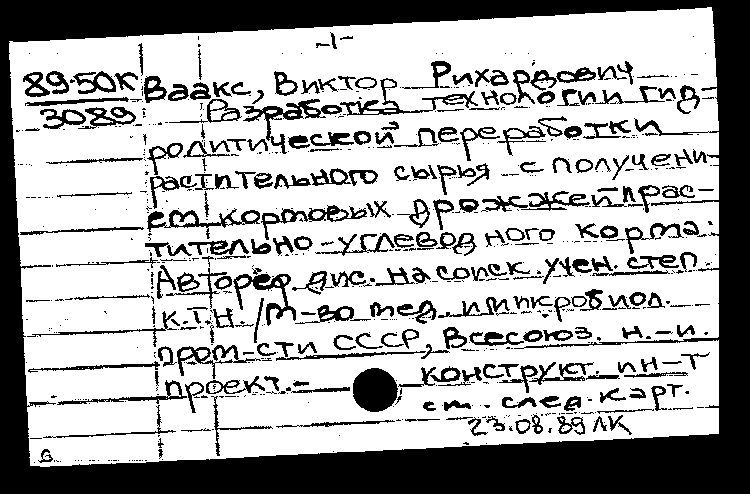 -1-
89-50К Ваакс, Виктор Рихардович
3089 Разработка технологии гид-
ролитической переработки
растительного сырья с получени-
ем кормовых дрожжей и рас-
тительно-углеводного корма:
Автореф. дис. на соиск. учен. степ.
к.т.н. / М-во мед. и микробиол.
пром-сти СССР, Всесоюз. н.-и.
проект.- конструкт. ин-т
см. след. карт.
23.08.89 ЛК